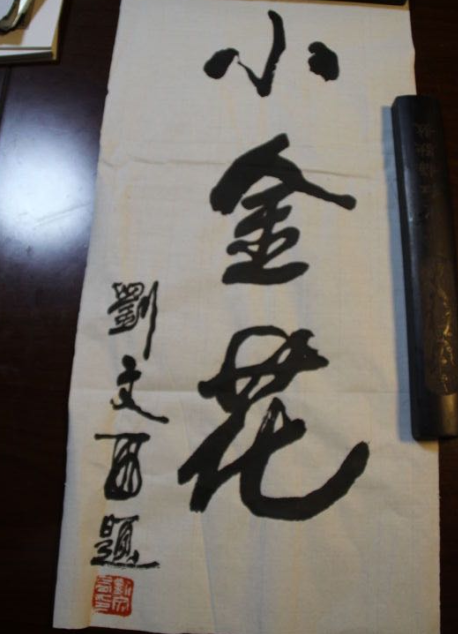 小金花
劉文西題